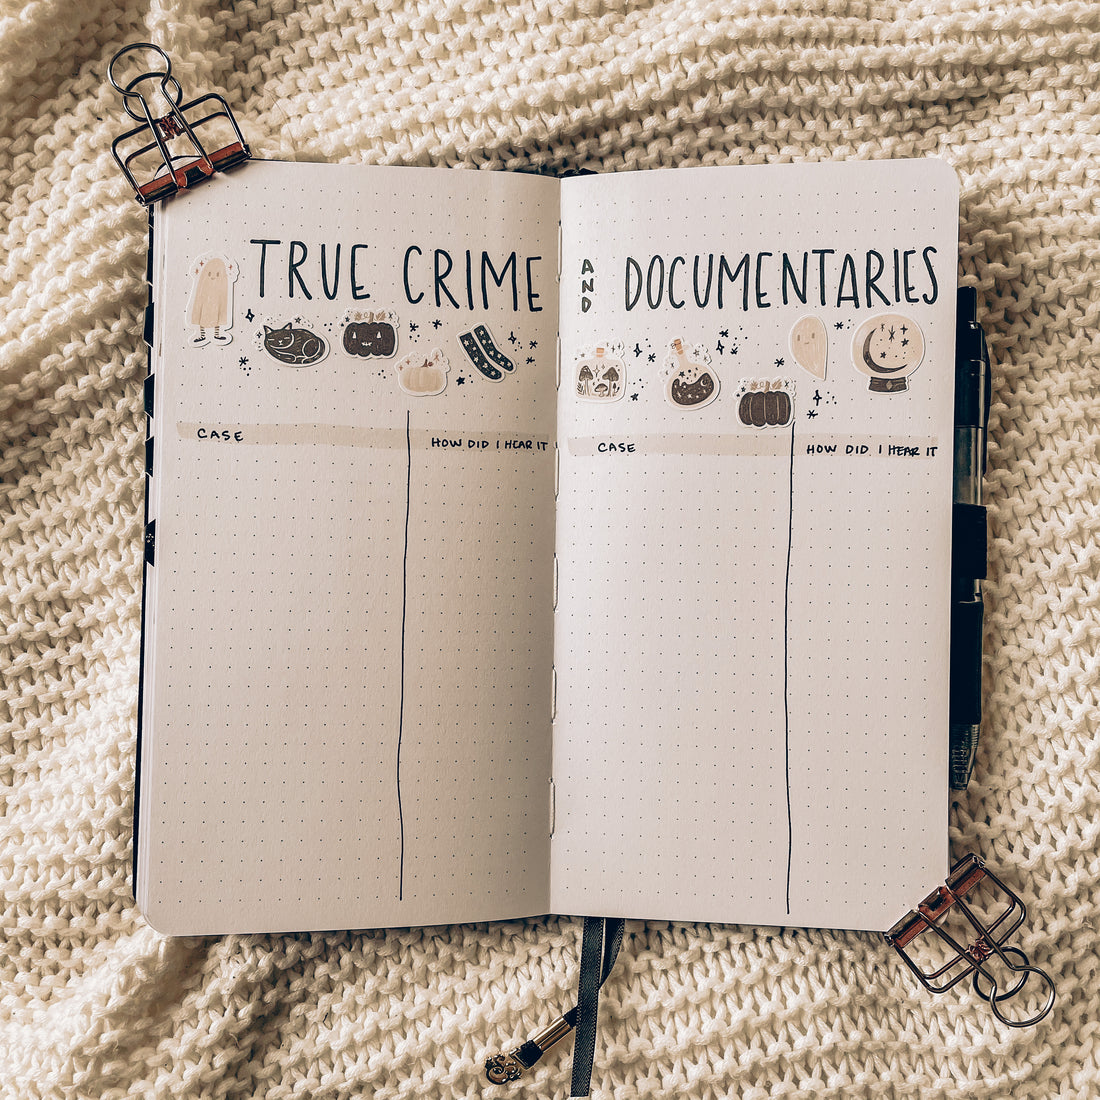 TRUE CRIME
CASE
HOW DID I HEAR IT
AND
DOCUMENTARIES
CASE
HOW DID I HEAR IT